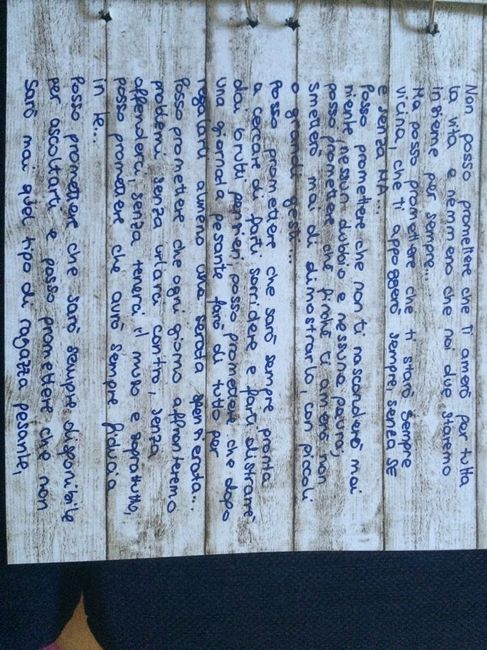 Non posso promettere che ti amerò per tutta
la vita e nemmeno che noi due staremo
insieme per sempre...
Ma posso promettere che ti starò sempre
vicina, che ti appoggerò sempre, senza SE
e senza MA...
Posso promettere che non ti nasconderò mai
niente, nessun dubbio e nessuna paura;
posso promettere che finché ti amerò non
smetterò mai di dimostrarlo, con piccoli
o grandi gesti...
Posso promettere che sarò sempre pronta
a cercare di farti sorridere e farti distrarre
dai brutti pensieri, posso promettere che dopo
una giornata pesante farò di tutto per
regalarti almeno una serata spensierata...
Posso promettere che ogni giorno affronteremo
problemi senza urlarci contro, senza
offenderci, senza tenerci il muso e soprattutto,
posso promettere che avrò sempre fiducia
in te...
Posso promettere che sarò sempre disponibile
per ascoltarti e posso promettere che non
sarò mai quel tipo di ragazza pesante,